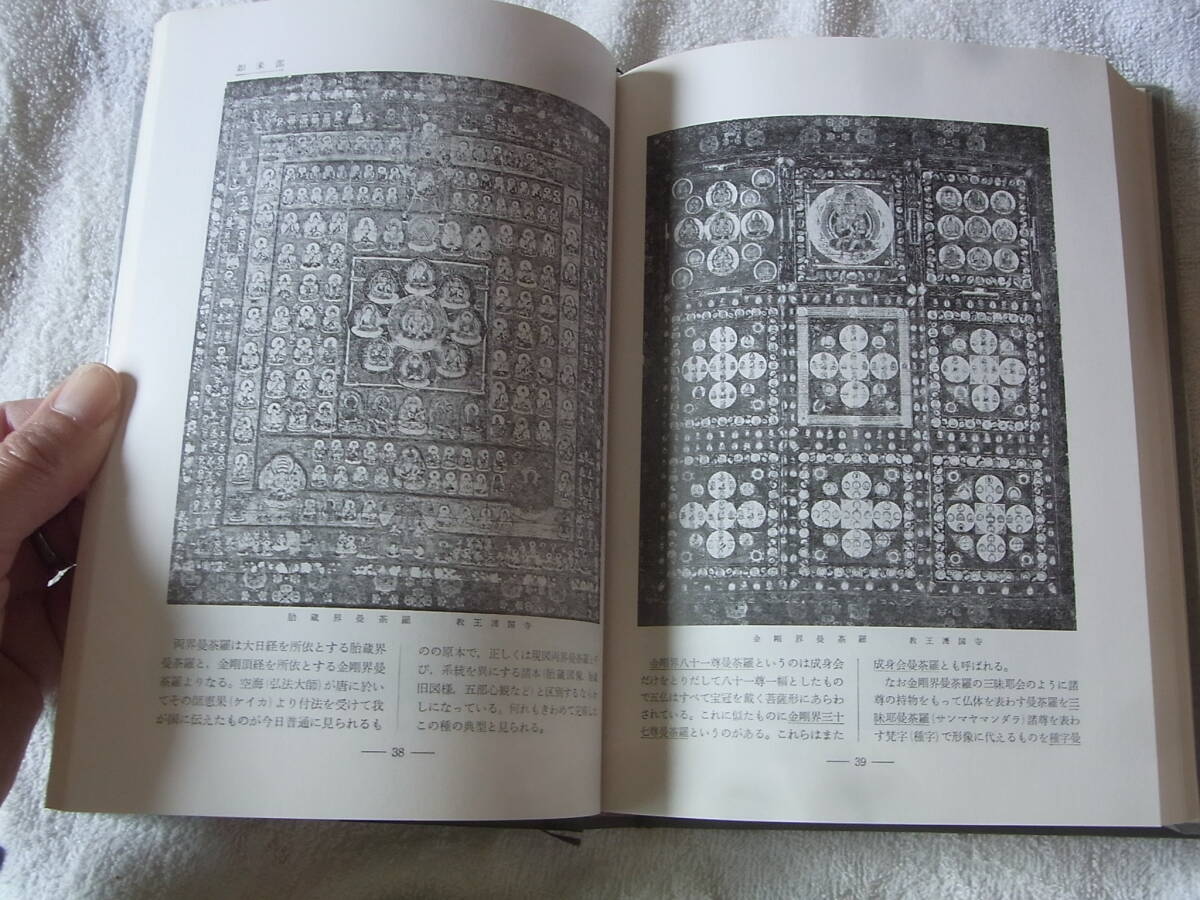 如来部
胎蔵界曼荼羅　教王護国寺
両界曼荼羅は大日経を所依とする胎蔵界
曼荼羅と、金剛頂経を所依とする金剛界曼
荼羅よりなる。空海(弘法大師)が唐に於い
てその師恵果(ケイカ)より付法を受けて我
が国に伝えたものが今日普通に見られるも
のの原本で、正しくは現図両界曼荼羅と
び、系統を異にする諸本(胎蔵図像、胎蔵
旧図様、五部心観など)と区別するなら
しになっている。何れもきわめて完
この種の典型と見られる。
38
金剛界曼荼羅　教王護国寺
金剛界八十一尊曼荼羅というのは成身会
だけをとりだして八十一尊一幅としたもの
で五仏はすべて宝冠を戴く菩薩形にあらわ
されている。これに似たものに金剛界三十
七尊曼荼羅というのがある。これらはまた
成身会曼荼羅とも呼ばれる。
なお金剛界曼荼羅の三昧耶会のように諸
尊の持物をもって仏体を表わす曼荼羅を三
昧耶曼荼羅(サンマヤマンダラ)諸尊を表わ
す梵字(種字)で形像に代えるものを種字曼
39